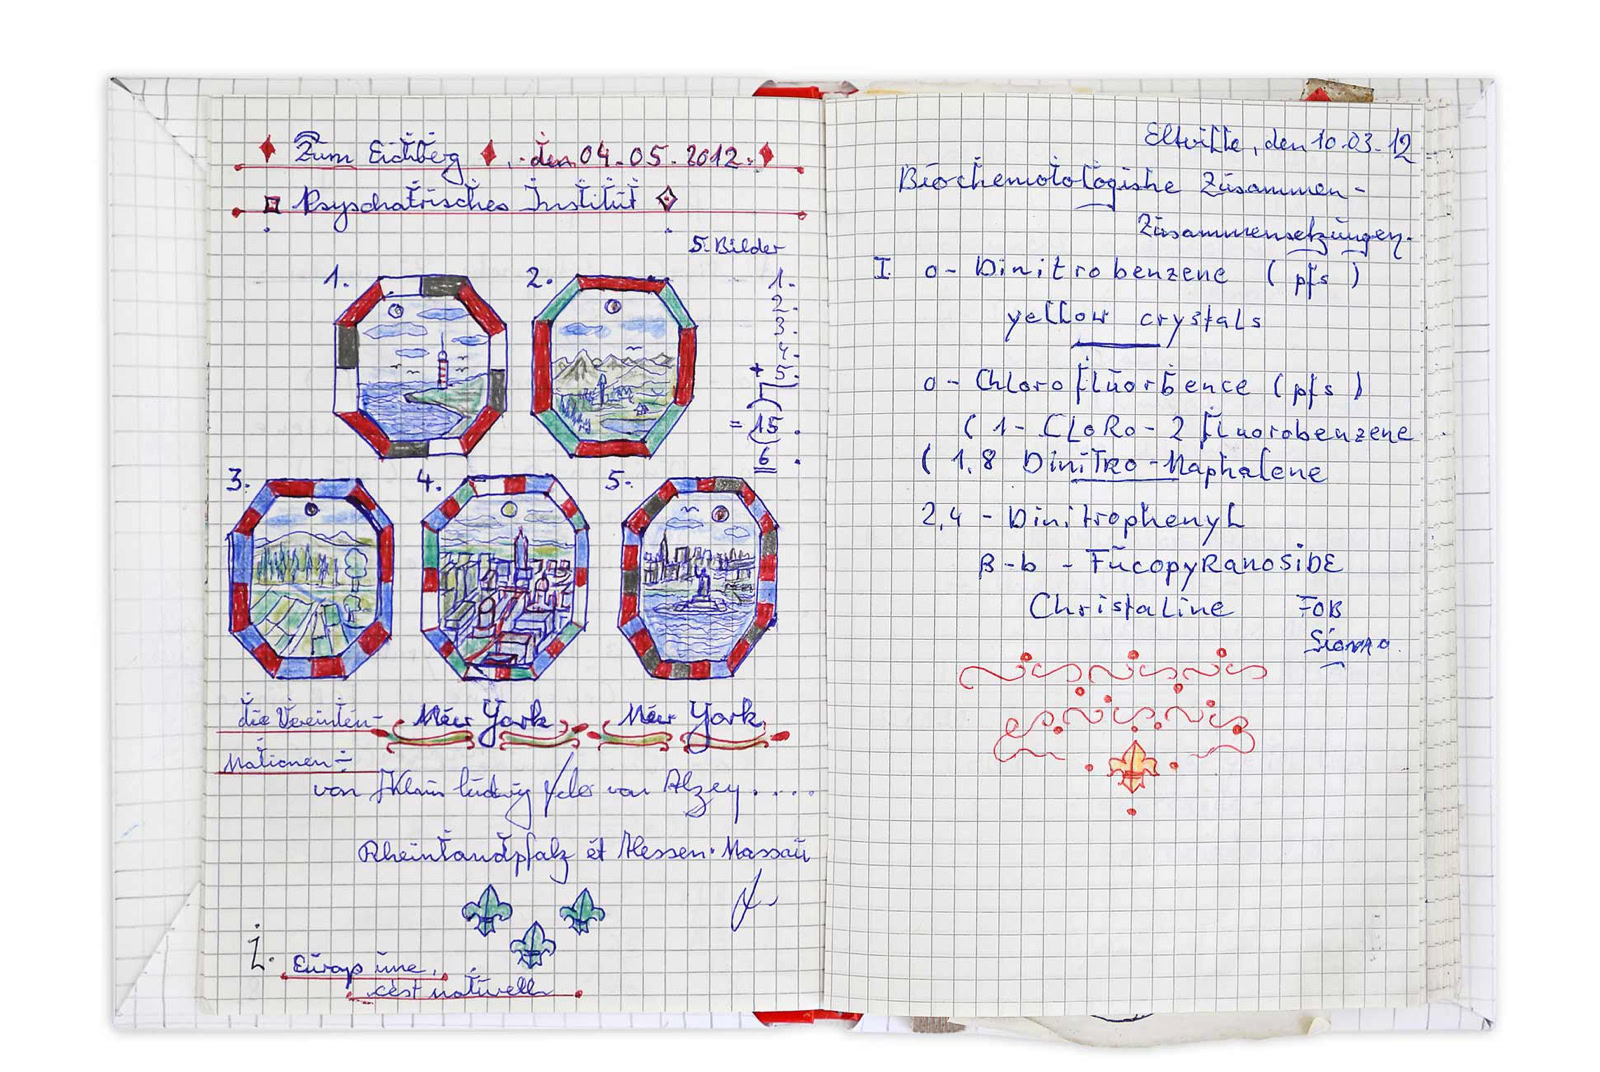 Zum Eichberg, den 04.05.2012.
Psychatrisches Institut
5. Bilder
1. 2.
1.
2.
3.
4.
+ 5.
= 15.
6.
3. 4. 5.
die Vereinten- New York New York
Nationen
von Klein ludwig von Alzey....
Rheinlandpfalz et Hessen. Nassau
Europ une,
c'est
Eltville, den 10.03.12
Biochemotologishe Zusammen-
Zusammensetzungen.
I o- Dinitrobenzene (pfs)
yellow crystals
o- Chlorofluorbence (pfs)
(1- CLoRo- 2 fluorobenzene
(1.8 DiniTRo-Naphalene
2,4 - Dinitrophenyl
β-b - FucopyRanoSiDE
Christaline FOB